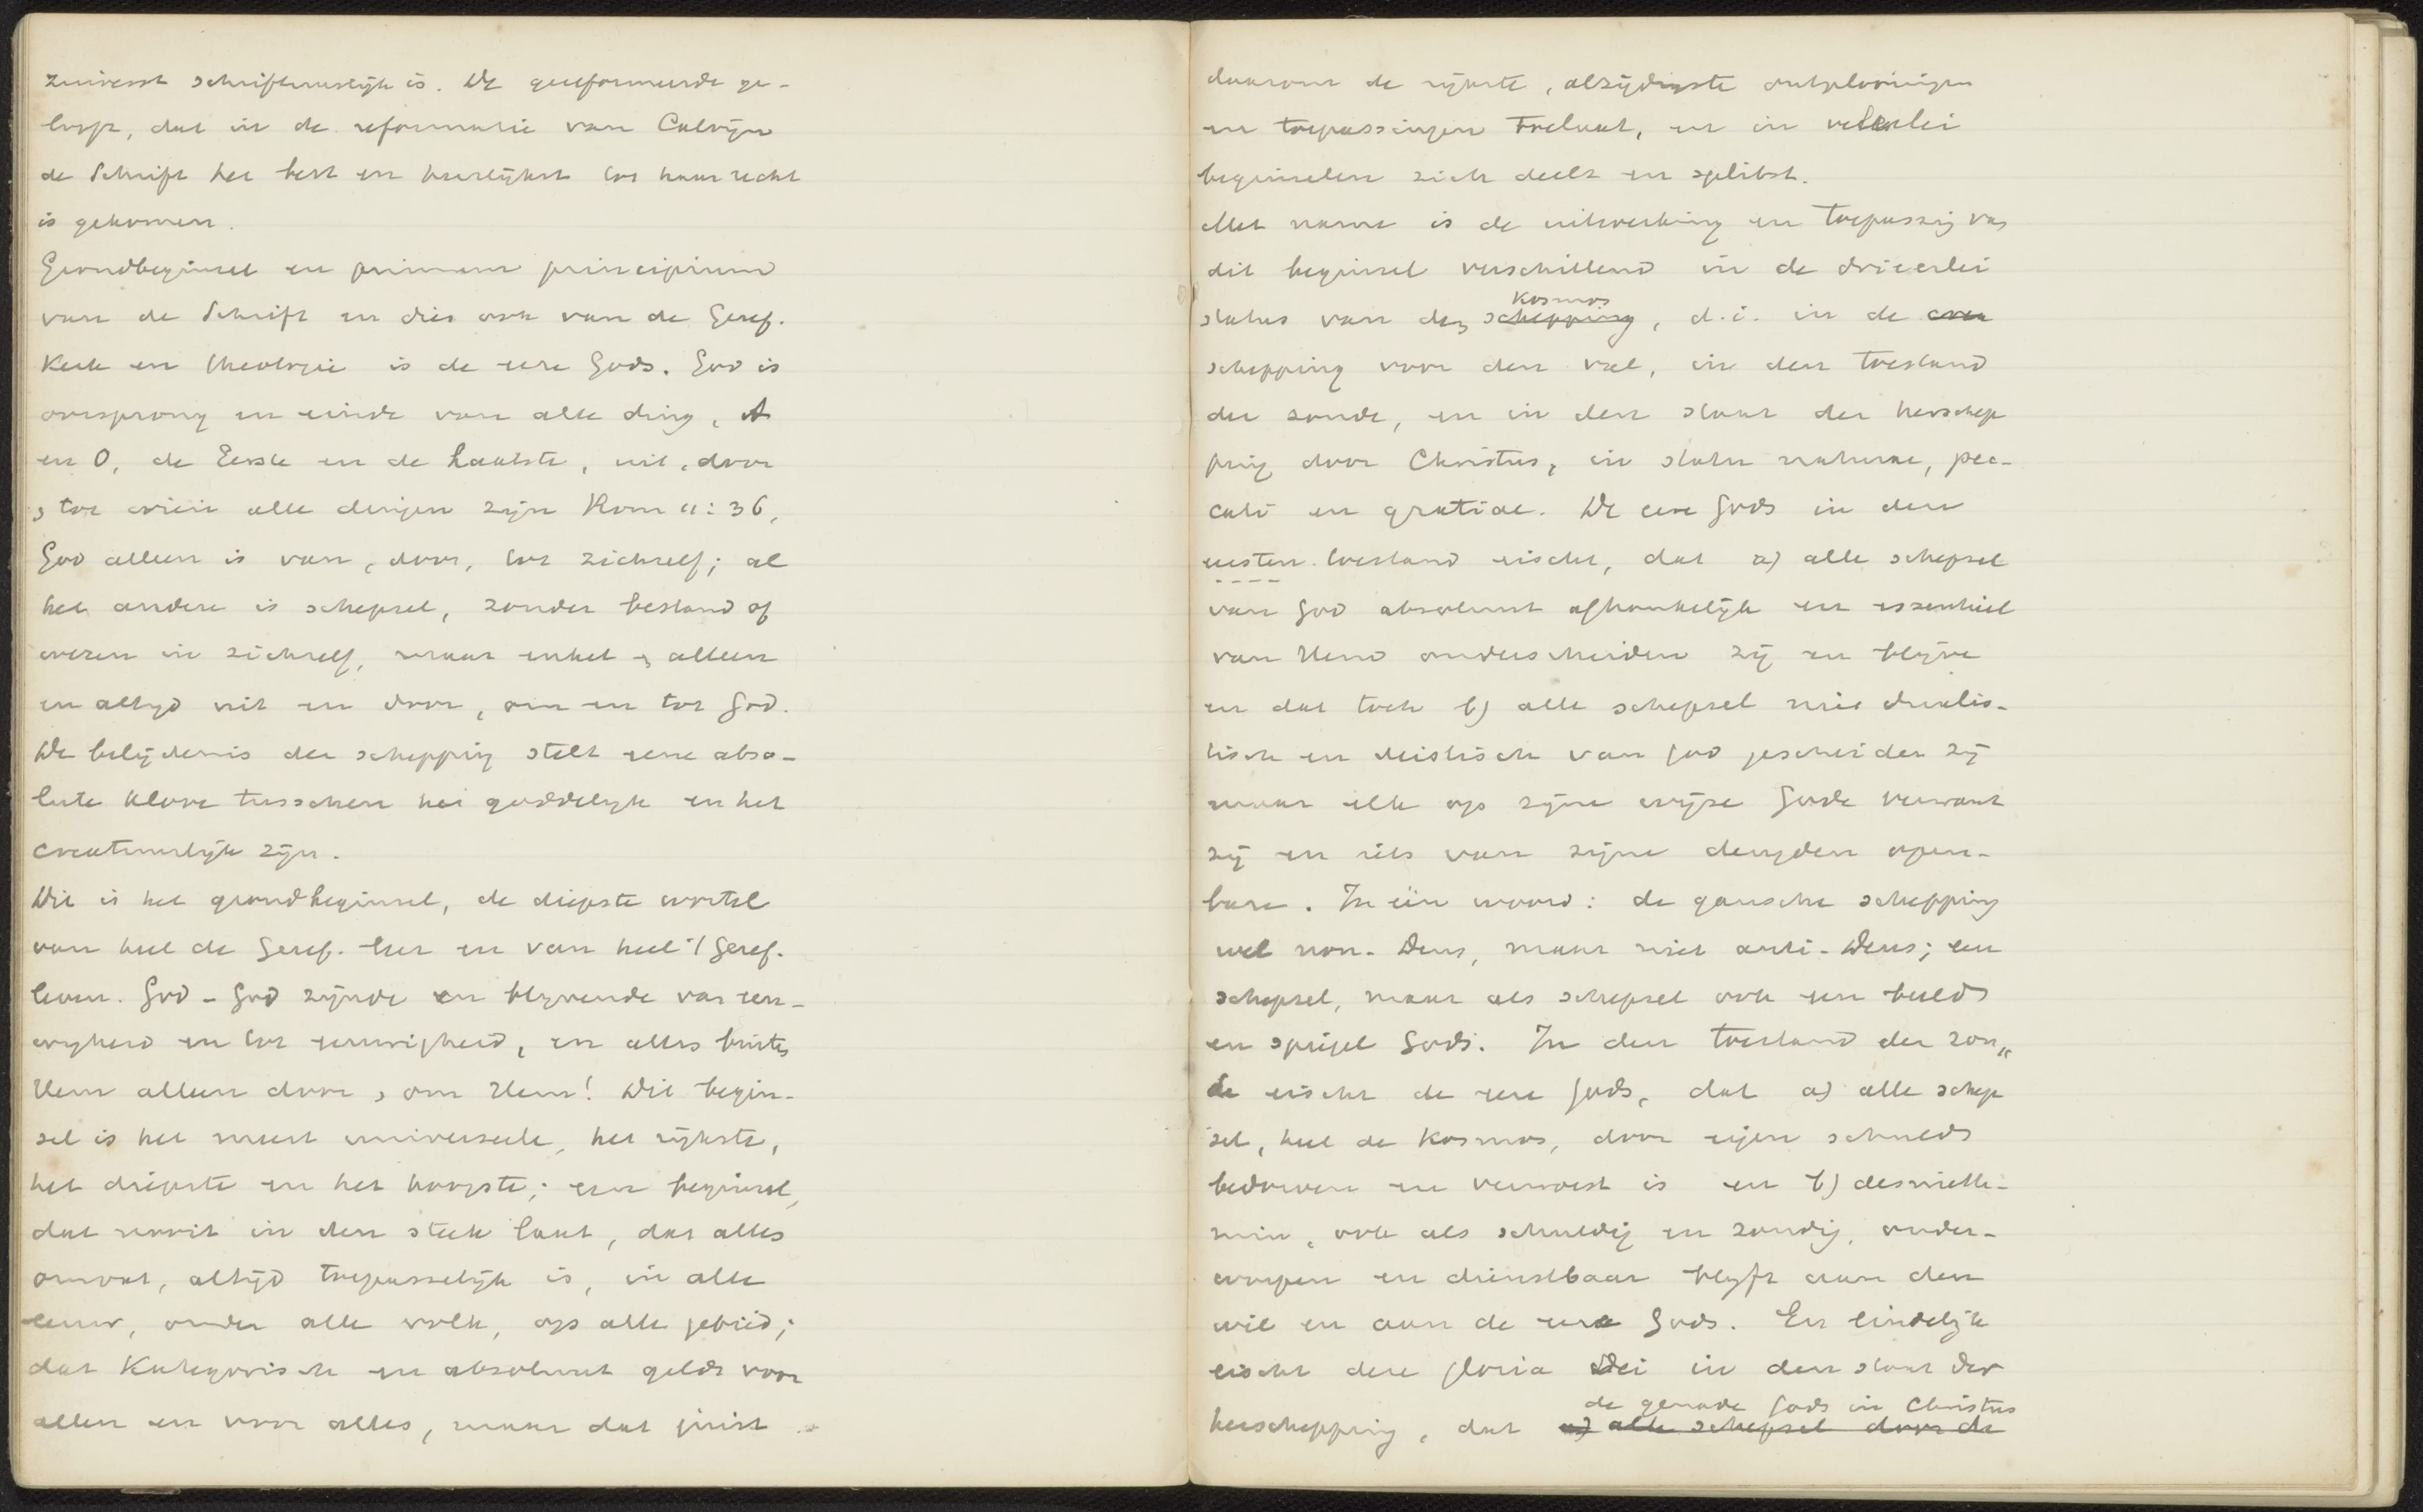 zuiverst schriftmatigh is. De gereformeerde ge-
looft, dat in de reformatie van Calvijn
de Schrift het best en heerlijkst tot haar recht
is gekomen.
Grondbeginsel en primum principium
van de Schrift en dies ook van de Geref.
Kerk en theologie is de eere Gods. God is
oorsprong en einde van alle ding, A
en O, de Eerste en de Laatste, uit, door
, tot wien alle dingen zijn Rom 11:36,
God alleen is van, door, tot zichzelf; al
het andere is schepsel, zonder bestand of
wezen in zichzelf, maar enkel , alleen
en altijd uit en door, om en tot God.
De belijdenis der schepping stelt eene abso-
lute klove tusschen het goddelijk en het
creatuurlijk zijn.
Dit is het grondbeginsel, de diepste wortel
van heel de Geref. leer en van heel 't Geref.
leven. God - God zijnde en blijvende van eeu-
wigheid en tot eeuwigheid, en alles buiten
Hem alleen door , om Hem! Dit begin-
sel is het meest universeele, het rijkste,
het diepste en het hoogste; een beginsel,
dat nooit in den steek laat, dat alles
omvat, altijd toepasselijk is, in alle
eeuw, onder alle volk, op alle gebied;
dat Kategorisch en absoluut geldt voor
allen en voor alles, maar dat juist
daarom de rijkste, alzijdigste ontplooiingen
en toepassingen toelaat, en in velerlei
beginselen zich deelt en splitst.
Met name is de uitwerking en toepassing van
dit beginsel verschillend in de drieerlei
Kosmos
status van den schepping, d.i. in de
schepping voor den val, in den toestand
der zonde, en in den staat der herschep
ping door Christus, in statu naturae, pec-
cati en gratiae. De eere Gods in den
eersten toestand eischt, dat a) alle schepsel
van God absoluut afhankelijk en essentieel
van Hem onderscheiden zij en blijve
en dat toch b) alle schepsel niet dualis-
tisch en deistisch van God gescheiden zij
maar elk op zijne wijze Gode verwant
zij en iets van zijne deugden open-
bare. In één woord: de gansche schepping
wel non-Deus, maar niet anti-Deus; een
schepsel, maar als schepsel ook een beeld
en spiegel Gods. In den toestand der zon„
de eischt de eere Gods, dat a) alle schep
sel, heel de Kosmos, door eigen schuld
bedorven en verwoest is en b) desniette-
min, ook als schuldig en zondig, onder-
worpen en dienstbaar blijft aan den
wil en aan de eere Gods. En eindelijk
eischt deze gloria Dei in den staat der
de genade Gods in Christus
herschepping, dat a) alle schepsel door de